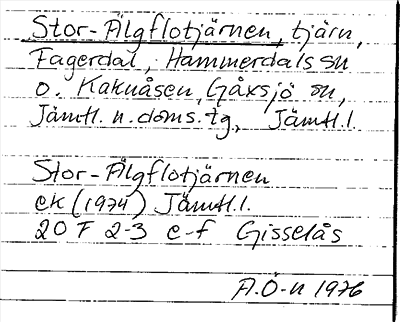 Stor-Älgflotjärnen, tjärn,
Fagerdal, Hammerdals sn
o. Kaknåsen, Gåxsjö sn,
Jämtl. n. doms. tg., Jämtl. l.
Stor-Älgflotjärnen
ek (1974) Jämtl. l.
20 F 2-3 e-f Gisselås
A.Ö-n 1976